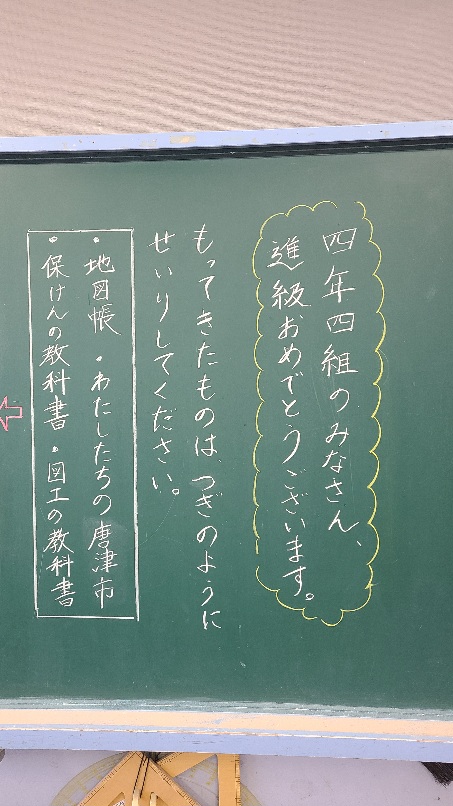 四年四組のみなさん、
進級おめでとうございます。
もってきたものは、つぎのように
せいりしてください。
・地図帳 ・わたしたちの唐津市
・保けんの教科書 ・図工の教科書